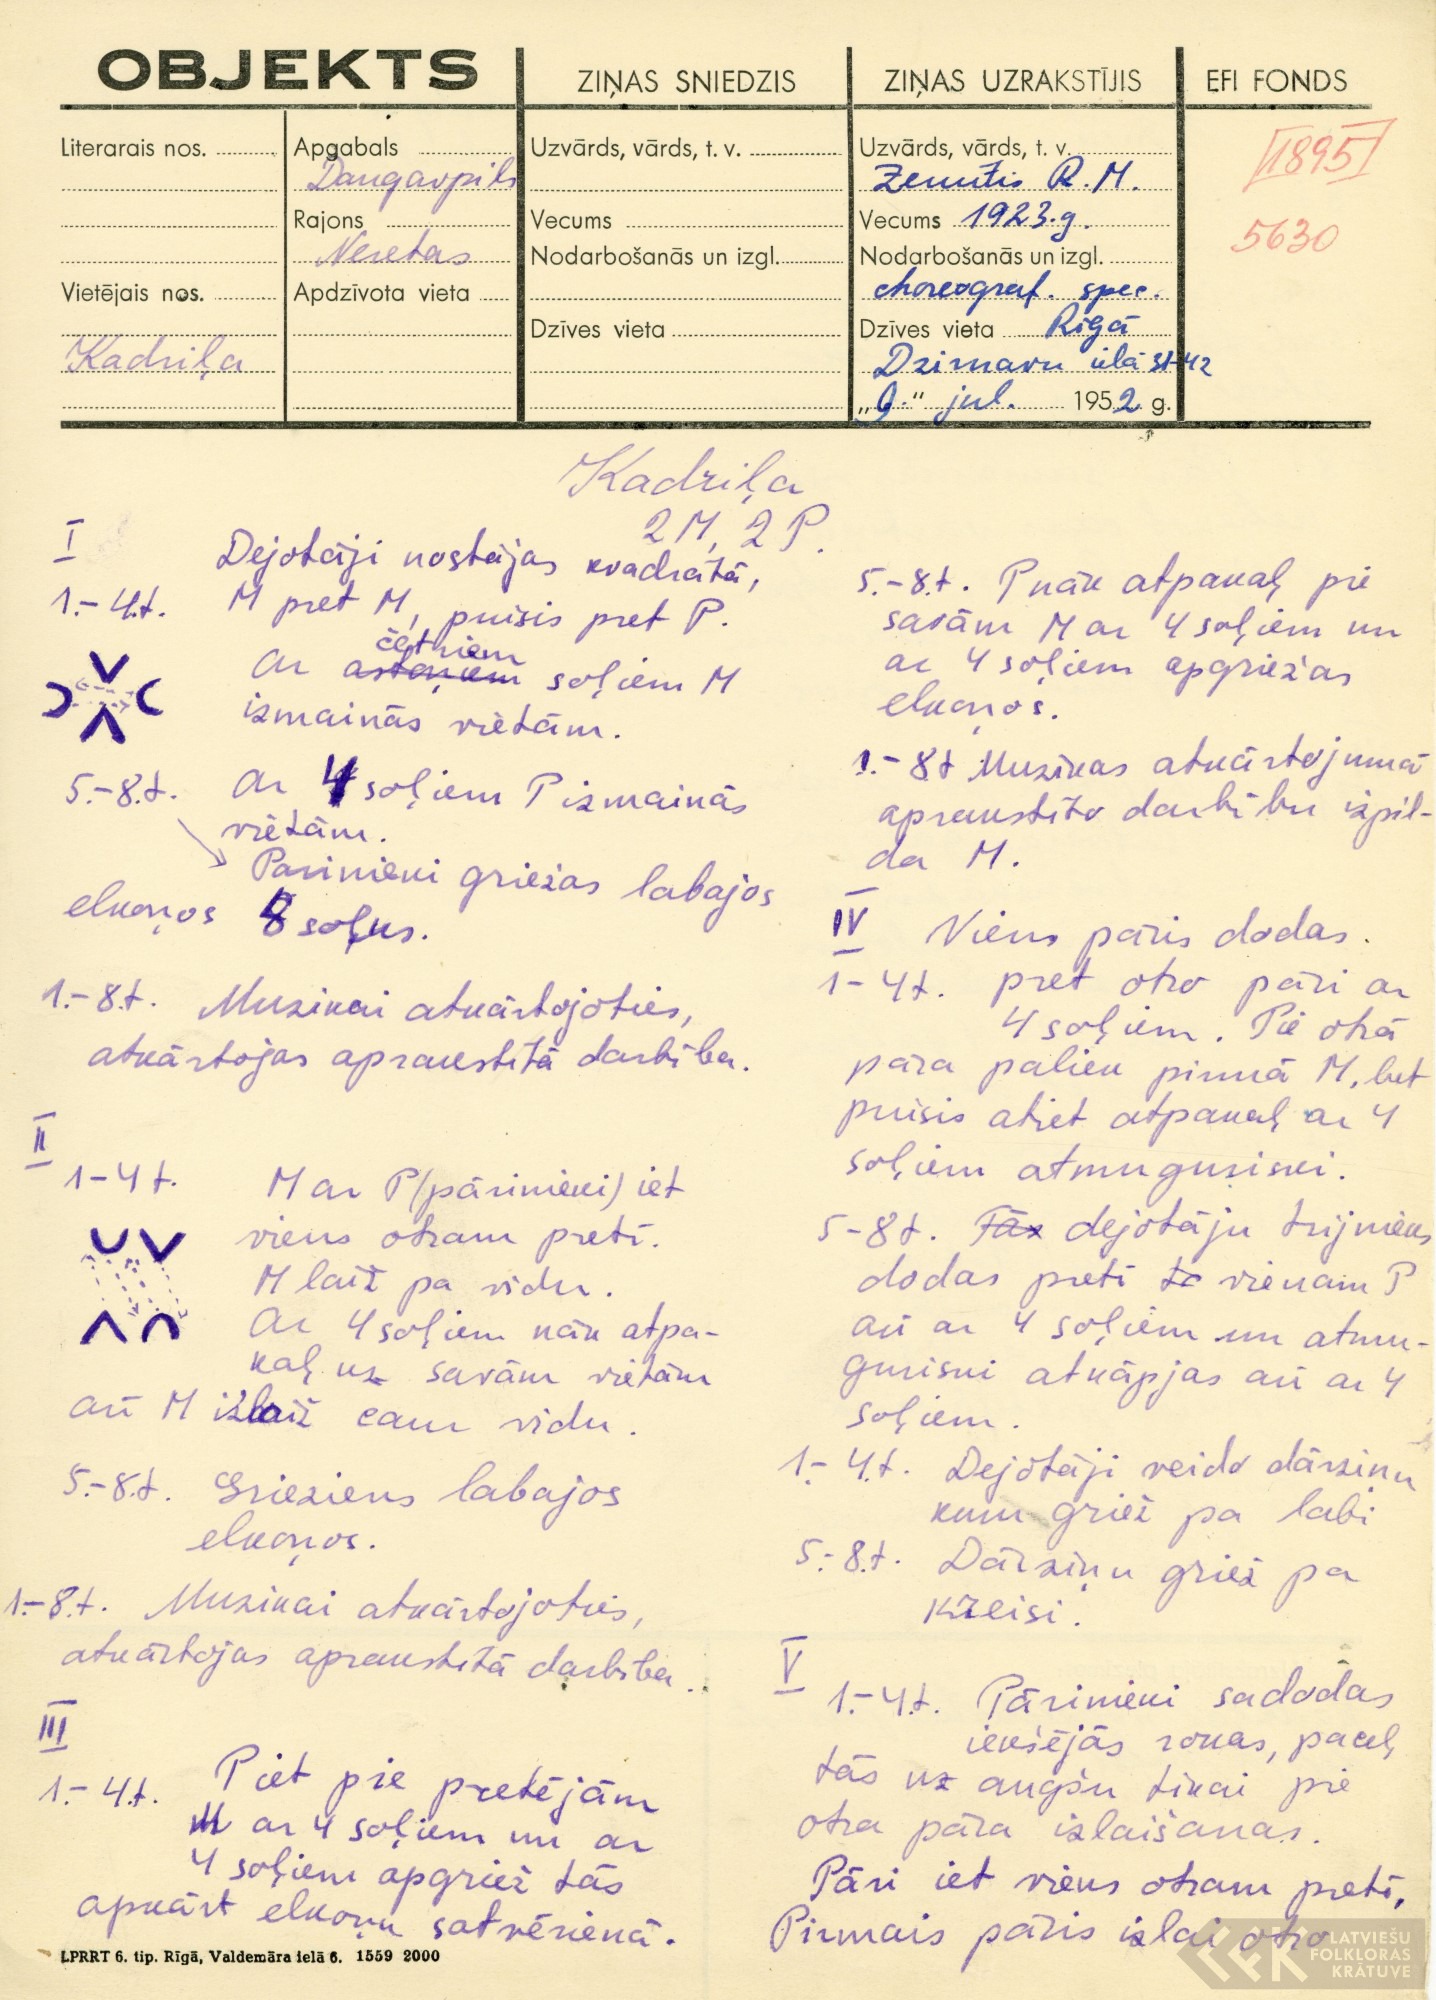 OBJEKTS
ZIŅAS SNIEDZIS
ZIŅAS UZRAKSTĪJIS
EFI FONDS
Literarais nos.
Vietējais nos.
Kadriļa
Apgabals
Daugavpils
Rajons
Neretas
Apdzīvota vieta
Uzvārds, vārds, t. v.
Vecums
Nodarbošanās un izgl.
Dzīves vieta
Uzvārds, vārds, t. v.
Zemītis R. M.
Vecums 1923.g.
Nodarbošanās un izgl.
choreograf. spec.
Dzīves vieta Rīgā
Dzirnavu ielā 31-42
„9.“ jul. 1952 g.
1895
5630
Kadriļa
2M, 2P.
I
Dejotāji nostājas kvadrātā,
1.-4.t. M pret M, puisis pret P.
četriem
Ar astoņiem soļiem M
izmainās vietām.
5.-8.t. Ar 4 soļiem P izmainās
vietām.
Pārinieki griežas labajos
elkoņos 8 soļus.
1.-8.t. Muzikai atkārtojoties,
atkārtojas aprakstītā darbība.
II
1-4 t. M ar P (pārinieki) iet
viens otram pretī.
M laiž pa vidu.
Ar 4 soļiem nāk atpa-
kaļ uz savām vietām
arī M izlaiž caur vidu.
5.-8.t. Grieziens labajos
elkoņos.
1.-8.t. Muzikai atkārtojoties,
atkārtojas aprakstītā darbība.
III
1.-4.t. P iet pie pretējām
M ar 4 soļiem un ar
4 soļiem apgriež tās
apkārt elkoņu satvērienā.
5.-8.t. P nāk atpakaļ pie
savām M ar 4 soļiem un
ar 4 soļiem apgriežas
elkoņos.
1.-8t Muzikas atkārtojumā
aprakstīto darbību izpil-
da M.
IV Viens pāris dodas
1-4t. pret otro pāri ar
4 soļiem. Pie otrā
pāra paliek pirmā M, bet
puisis atiet atpakaļ ar 4
soļiem atmuguriski.
5-8t. Tās dejotāju trijnieks
dodas pretī vienam P
arī ar 4 soļiem un atmu-
guriski atkāpjas arī ar 4
soļiem.
1.-4.t. Dejotāji veido dārziņu
kuru griež pa labi
5.-8.t. Dārziņu griež pa
kreisi.
V
1.-4.t. Pārinieki sadodas
iekšējās rokas, paceļ
tās uz augšu tikai pie
otra pāra izlaišanas.
Pāri iet viens otram pretī,
Pirmais pāris izlai otro
LPRRT 6. tip. Rīgā, Valdemāra ielā 6. 1559 2000
LFK
LATVIEŠU
FOLKLORAS
KRĀTUVE